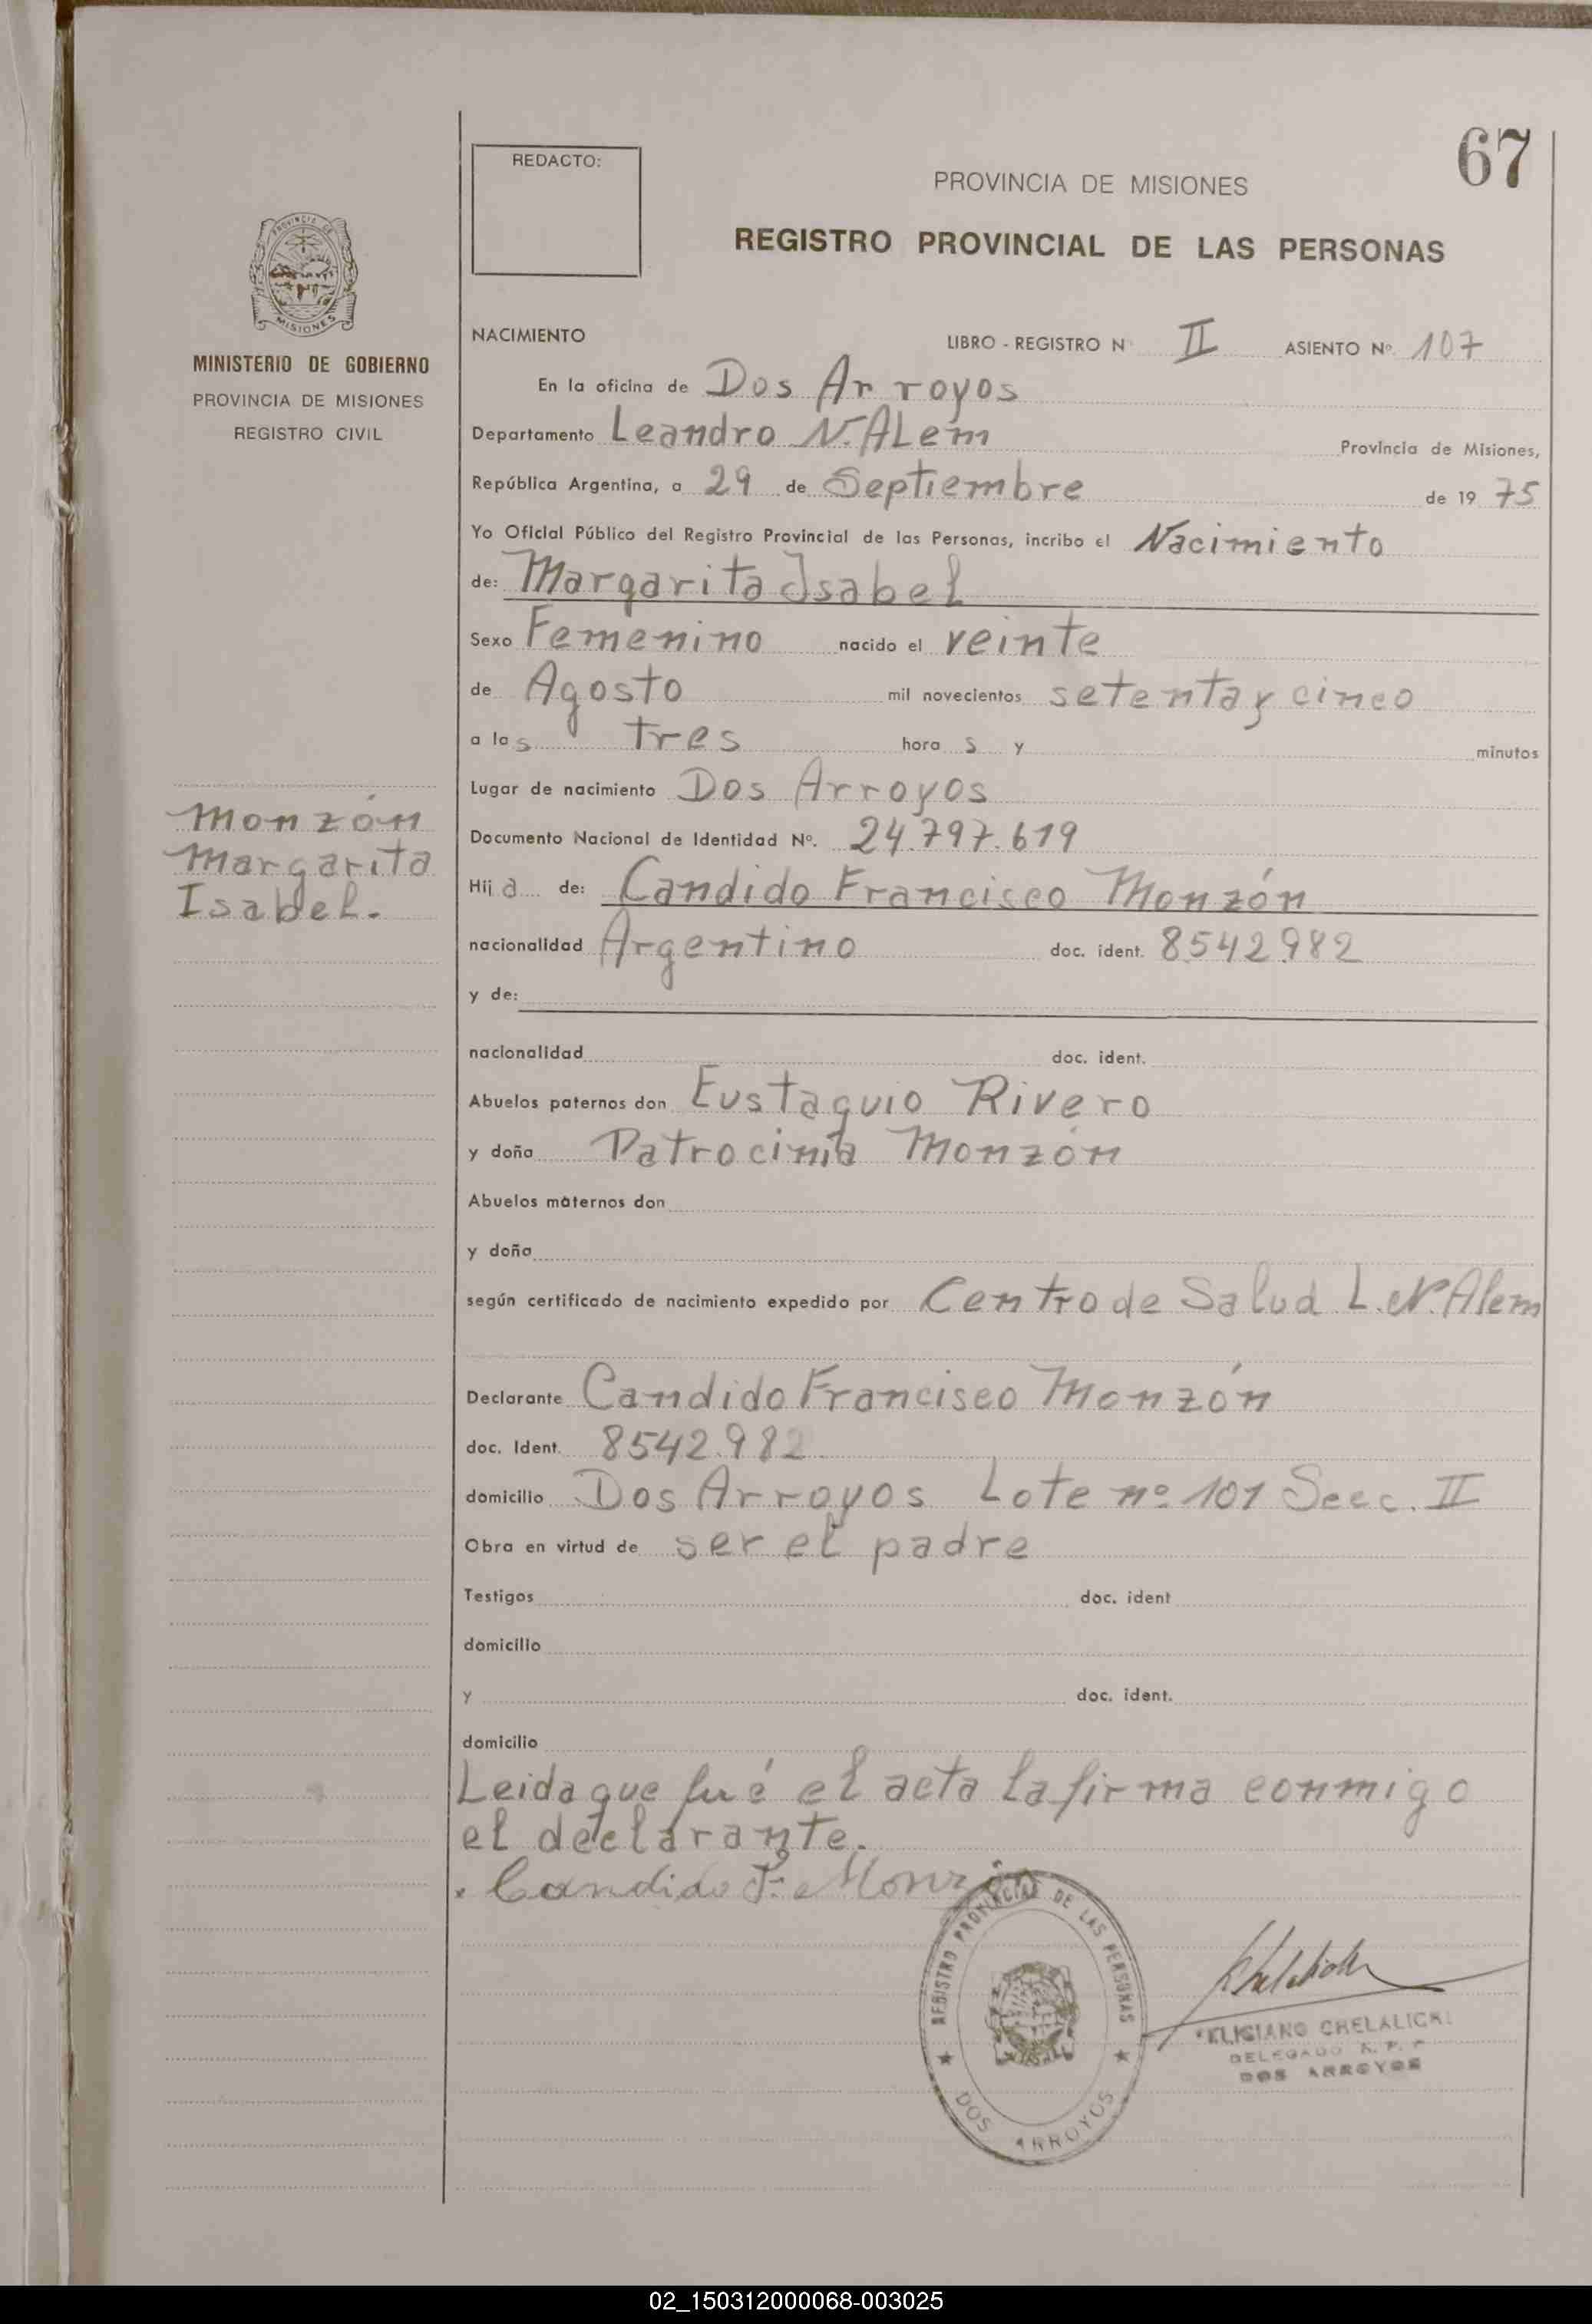 67
REDACTO:
PROVINCIA DE MISIONES
REGISTRO PROVINCIAL DE LAS PERSONAS
PROVINCIA DE
MISIONES
MINISTERIO DE GOBIERNO
PROVINCIA DE MISIONES
REGISTRO CIVIL
NACIMIENTO
LIBRO - REGISTRO N II ASIENTO Nº. 107
En la oficina de Dos Arroyos
Departamento Leandro N. ALem Provincia de Misiones,
República Argentina, a 29 de Septiembre de 19 75
Yo Oficial Público del Registro Provincial de las Personas, incribo el Nacimiento
de: Margarita Isabel
Sexo Femenino nacido el veinte
de Agosto mil novecientos setenta y cinco
a las tres hora s y minutos
Lugar de nacimiento Dos Arroyos
Documento Nacional de Identidad Nº. 24.797.619
Monzón
Margarita
Isabel.
Hij a de: Candido Francisco Monzón
nacionalidad Argentino doc. ident. 8.542.982
y de:
nacionalidad doc. ident.
Abuelos paternos don Eustaquio Rivero
y doña Patrocinia Monzón
Abuelos maternos don
y doña
según certificado de nacimiento expedido por Centro de Salud L. N. Alem
Declarante Candido Francisco Monzón
doc. Ident. 8542.982
domicilio Dos Arroyos Lote nº 101 Secc. II
Obra en virtud de ser el padre
Testigos doc. ident
domicilio
y doc. ident.
domicilio
Leida que fué el acta la firma conmigo
el declarante.
Candido F. Monzón
REGISTRO PROVINCIAL DE LAS PERSONAS
DOS ARROYOS
CHELALICKI
DELEGADO R. P. P
DOS ARROYOS
02_150312000068-003025